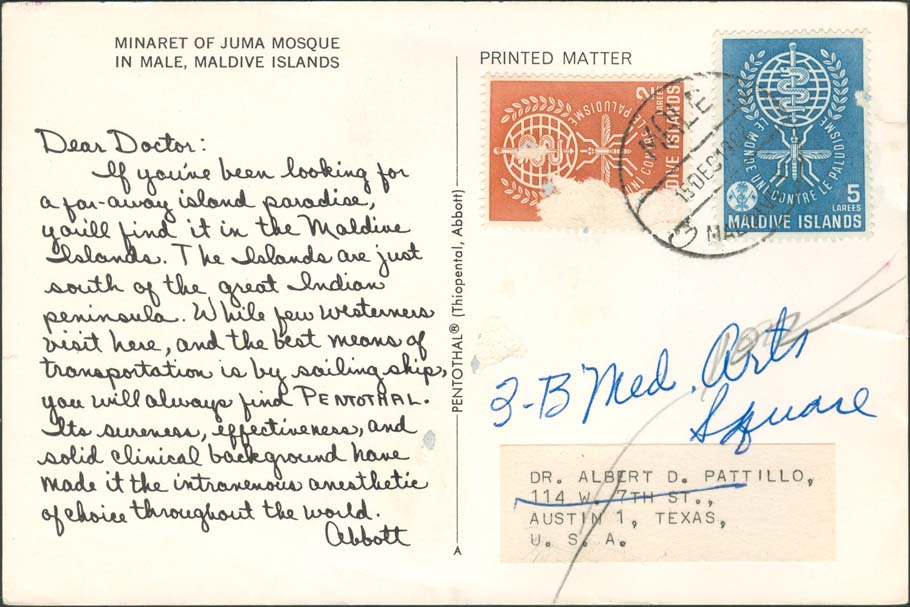 MINARET OF JUMA MOSQUE
IN MALE, MALDIVE ISLANDS
Dear Doctor:
If you've been looking for
a far-away island paradise,
you'll find it in the Maldive
Islands. The Islands are just
south of the great Indian
peninsula. While few westerners
visit here, and the best means of
transportation is by sailing ship,
you will always find PENTOTHAL.
Its sureness, effectiveness, and
solid clinical background have
made it the intravenous anesthetic
of choice throughout the world.
Abbott
PENTOTHAL® (Thiopental, Abbott)
A
PRINTED MATTER
2
LAREES
PALUDISME
UNI CONTRE
MALDIVE ISLANDS
MALE
15 DEC 196
LE MONDE UNI CONTRE LE PALUDISME
5
LAREES
MALDIVE ISLANDS
3-B Med. Arts
Square
DR. ALBERT D. PATTILLO,
114 W. 7TH ST.,
AUSTIN 1, TEXAS,
U. S. A.